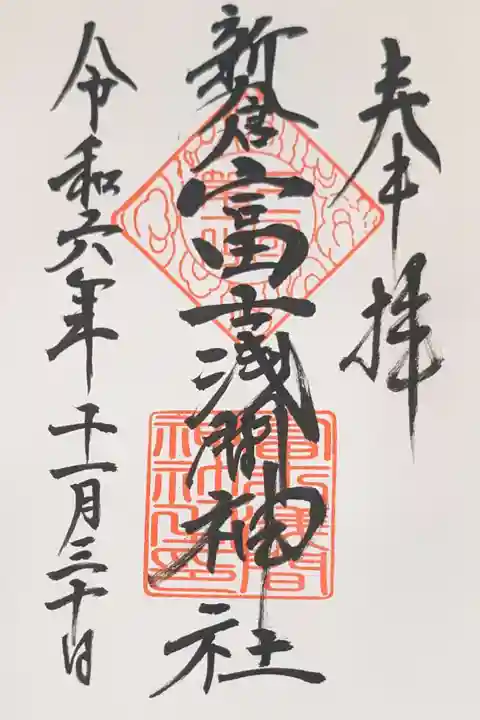 奉拝
新倉富士浅間神社
令和六年十一月三十日